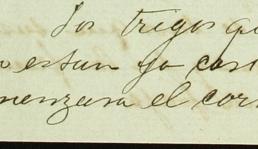 Los trigos qu
estan ya casi
menzara el cor